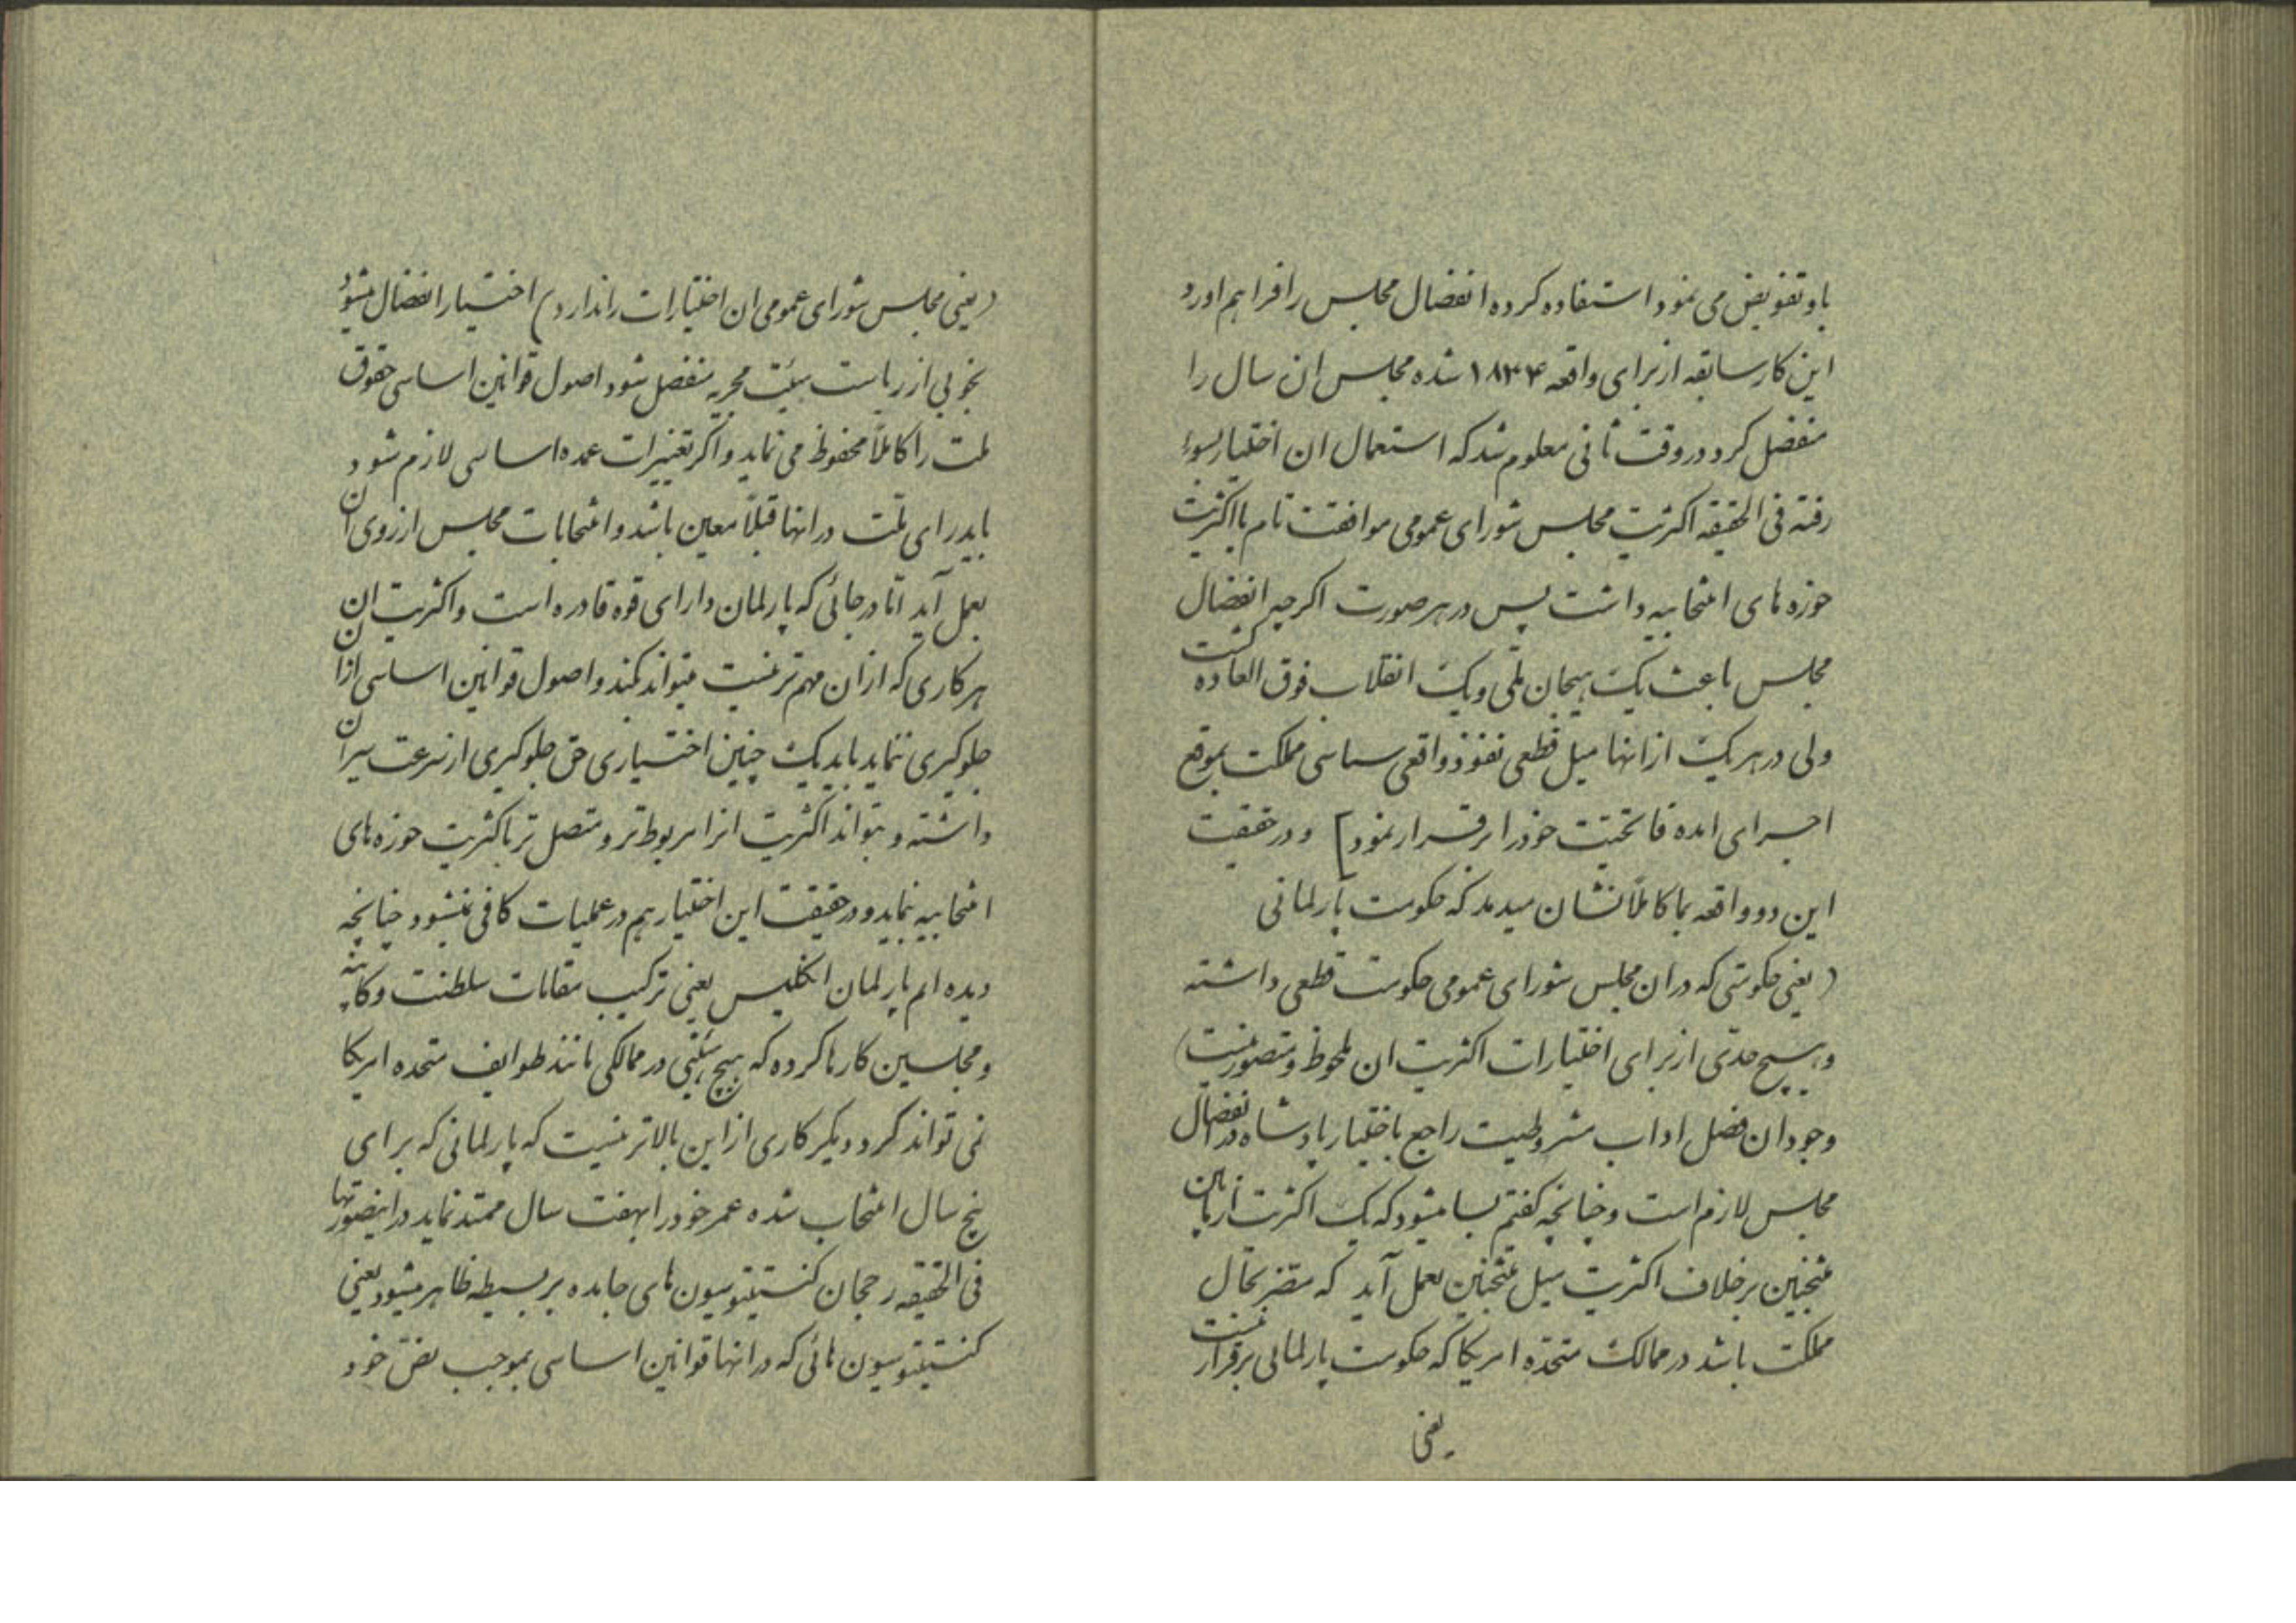 باو تفویض می نمود استفاده کرده انفصال مجلس را فراهم اورد
این کار سابقه از برای واقعه ۱۸۳۴ شده مجلس ان سال را
منفصل کرد در وقت ثانی معلوم شد که استعمال ان اختیار بسوء
رفته فی الحقیقه اکثریت مجلس شورای عمومی موافقت تام با اکثریت
حوزه های انتخابیه داشت پس در هر صورت اکرچه انفصال
مجلس باعث یک هیجان ملّی و یک انقلاب فوق العاده کشت
ولی در هر یک از انها میل قطعی نفوذ واقعی سیاسی مملکت بموقع
اجرای اراده فاتحیّت خود را برقرار نمود] و در حقیقت
این دو واقعه بما کاملاً نشان میدهد که حکومت پارلمانی
(یعنی حکومتی که در ان مجلس شورای عمومی حکومت قطعی داشته
و هیچ حدّی از برای اختیارات اکثریت ان ملحوظ و متصور نیست)
وجود ان فصل اداب مشروطیت راجع باختیار پادشاه در انفصال
مجلس لازم است و چنانچه کفتم بسا میشود که یک اکثریت از میان
منتخبین برخلاف اکثریت میل منتخبین بعمل آید که مضر بحال
مملکت باشد در ممالک متحده امریکا که حکومت پارلمانی برقرار نیست
یعنی
(یعنی مجلس شورای عمومی ان اختیارات را ندارد) اختیار انفصال میشود
بخوبی از ریاست هیئت مجریه منفصل شود اصول قوانین اساسی حقوق
ملت را کاملاً محفوظ می نماید و اکر تغییرات عمده اساسی لازم شود
باید رای ملّت در انها قبلاً معین باشد و انتخابات مجلس از روی ان
بعمل آید امّا در جائی که پارلمان دارای قوه قادره است و اکثریت ان
هر کاری که از ان مهم تر نیست میتواند بکند و اصول قوانین اساسی از ان
جلوکیری ننماید باید یک چنین اختیاری حق جلوکیری از سرعت سیر ان
داشته و بتواند اکثریت انرا مربوط تر و متصل تر باکثریت حوزه های
انتخابیه نماید و در حقیقت این اختیار هم در عملیات کافی نمیشود چنانچه
دیده ام پارلمان انکلیس یعنی ترکیب مقامات سلطنت و کابینه
و مجلسین کارها کرده که هیچ هیئتی در ممالکی مانند طوایف متحده امریکا
نمی تواند کرد و دیکر کاری از این بالاتر نیست که پارلمانی که برای
پنج سال انتخاب شده عمر خود را بهفت سال ممتد نماید در اینصورتها
فی الحقیقه رجحان کنستیتوسیون های جامده بر بسیطه ظاهر میشود یعنی
کنستیتوسیون هائی که در انها قوانین اساسی بموجب نص خود